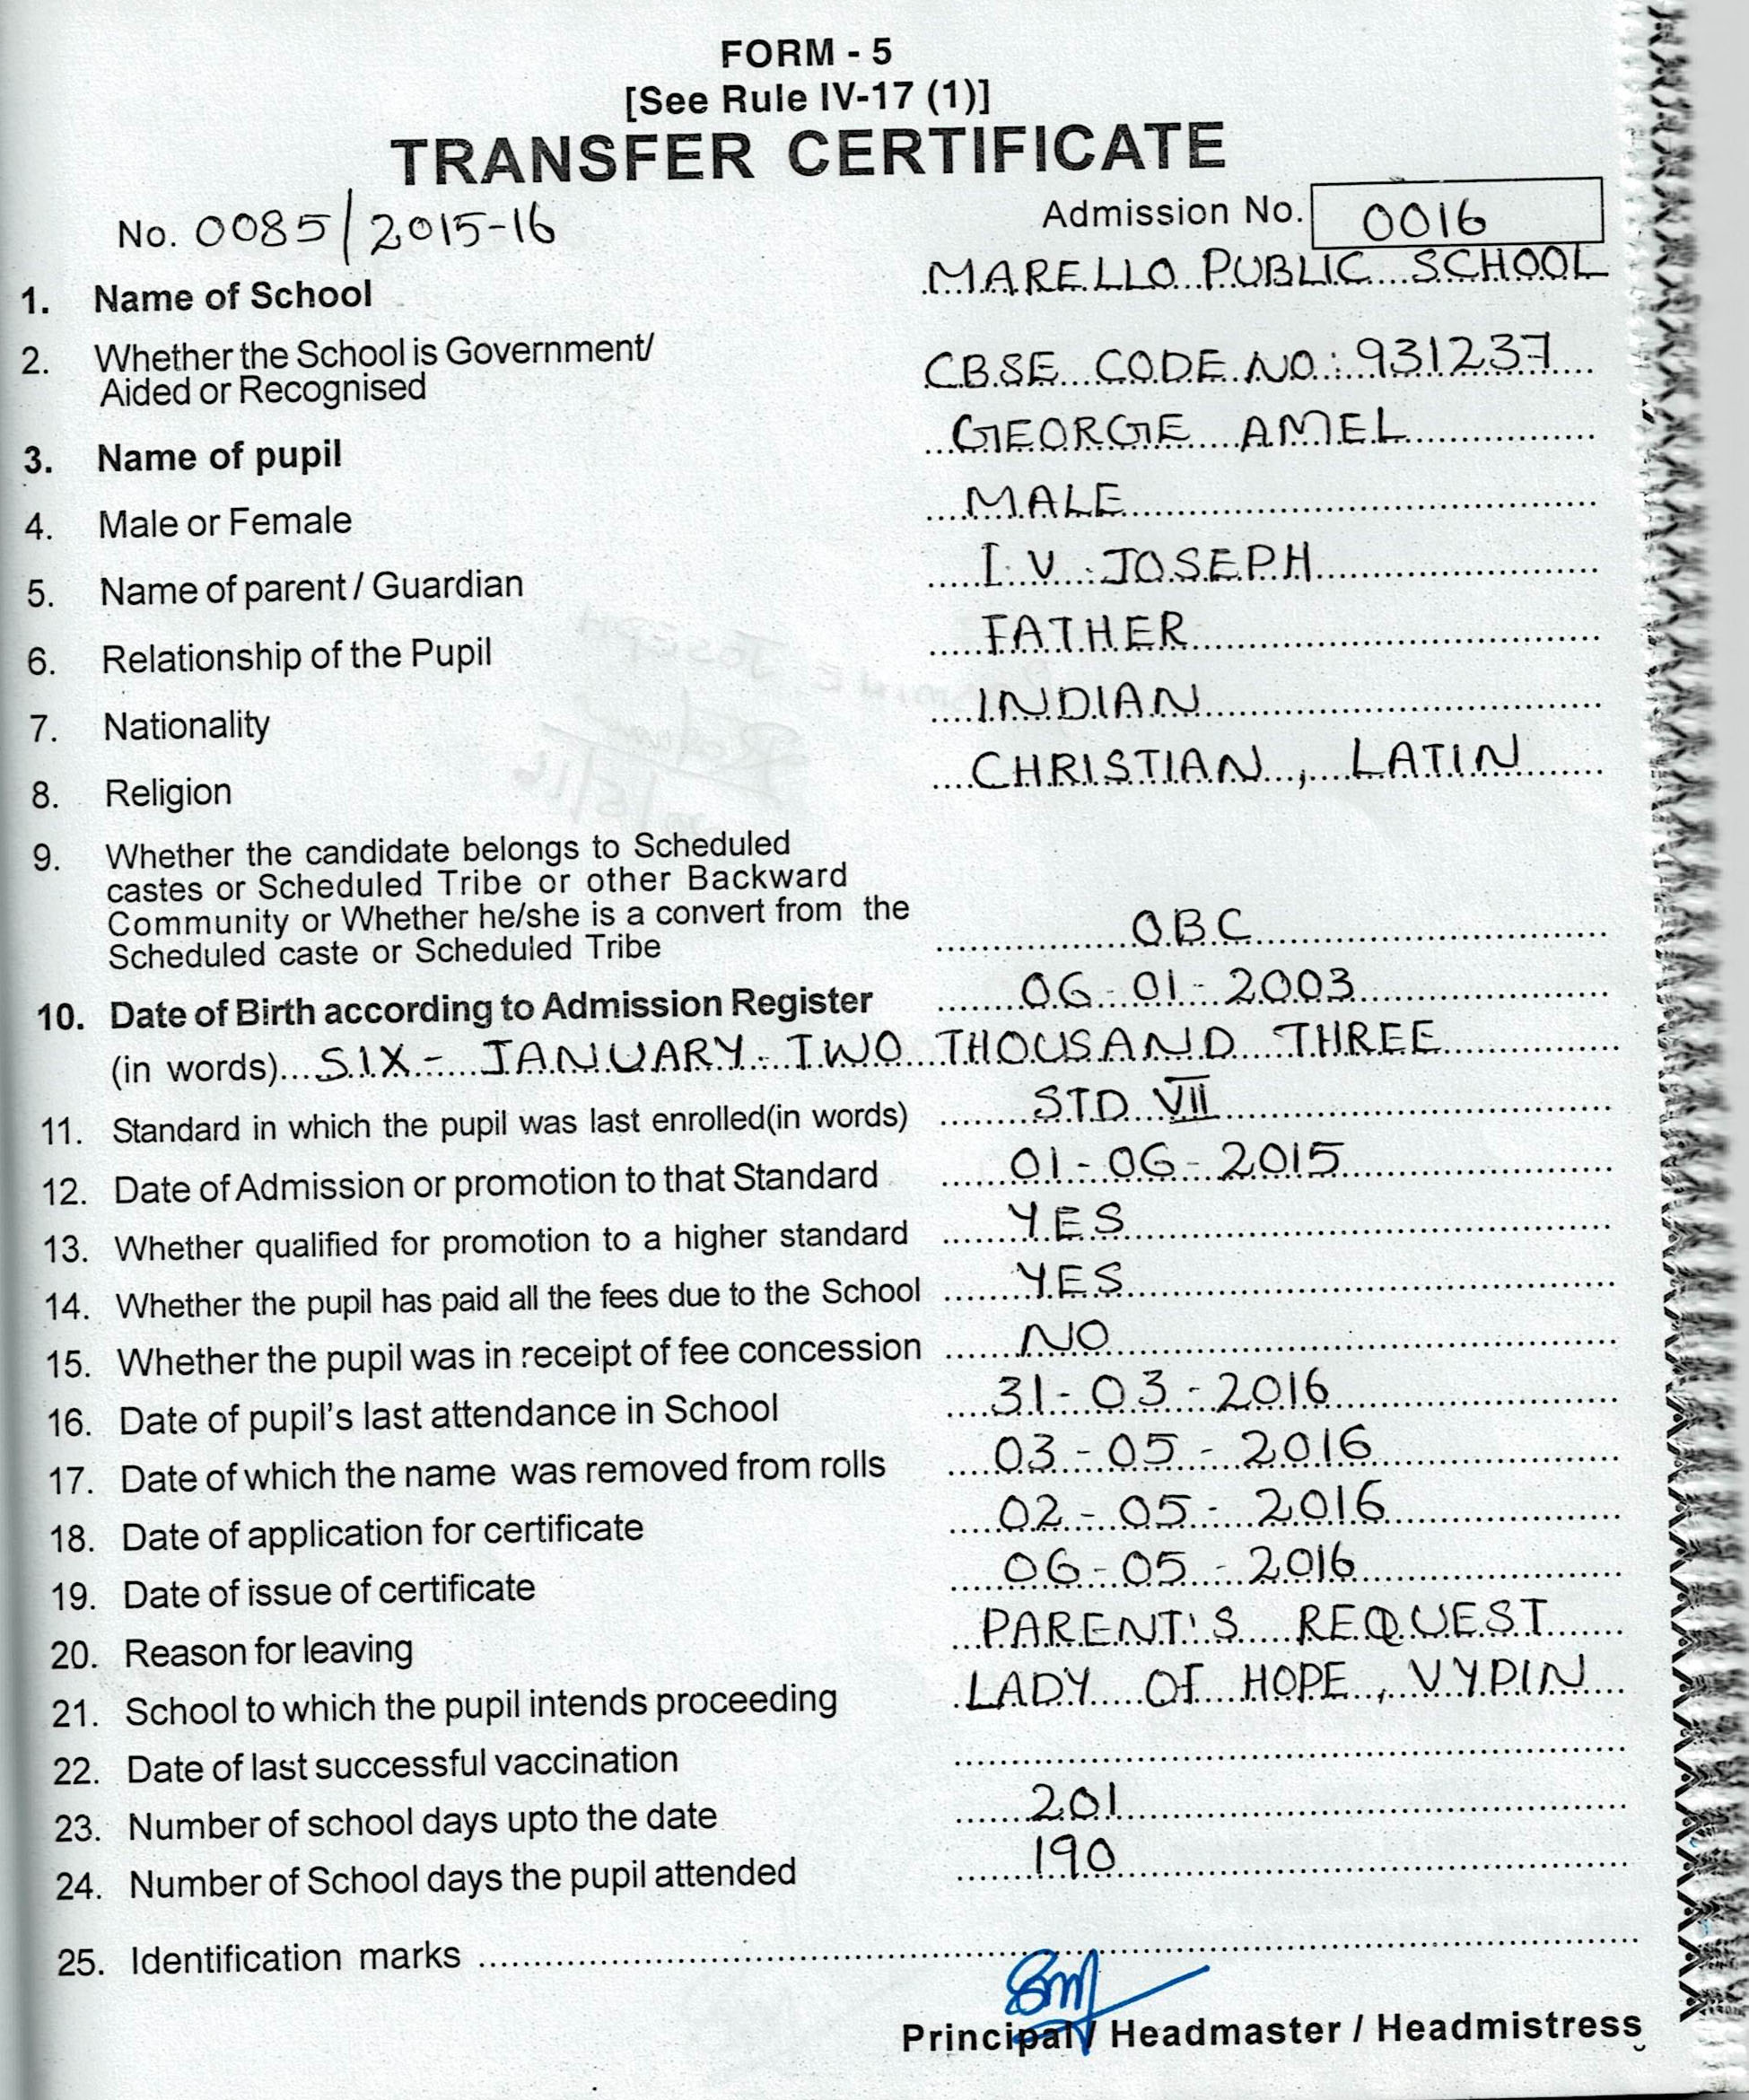 FORM - 5
[See Rule IV-17 (1)]
TRANSFER CERTIFICATE
No. 0085/2015-16
Admission No. 0016
1. Name of School MARELLO PUBLIC SCHOOL
2. Whether the School is Government/
Aided or Recognised CBSE CODE NO: 931237
3. Name of pupil GEORGE AMEL
4. Male or Female MALE
5. Name of parent / Guardian I. V. JOSEPH
6. Relationship of the Pupil FATHER
7. Nationality INDIAN
8. Religion CHRISTIAN, LATIN
9. Whether the candidate belongs to Scheduled
castes or Scheduled Tribe or other Backward
Community or Whether he/she is a convert from the
Scheduled caste or Scheduled Tribe OBC
10. Date of Birth according to Admission Register 06-01-2003
(in words) SIX - JANUARY - TWO THOUSAND THREE
11. Standard in which the pupil was last enrolled(in words) STD VII
12. Date of Admission or promotion to that Standard 01-06-2015
13. Whether qualified for promotion to a higher standard YES
14. Whether the pupil has paid all the fees due to the School YES
15. Whether the pupil was in receipt of fee concession NO
16. Date of pupil's last attendance in School 31-03-2016
17. Date of which the name was removed from rolls 03-05-2016
18. Date of application for certificate 02-05-2016
19. Date of issue of certificate 06-05-2016
20. Reason for leaving PARENT'S REQUEST
21. School to which the pupil intends proceeding LADY OF HOPE, VYPIN
22. Date of last successful vaccination
23. Number of school days upto the date 201
24. Number of School days the pupil attended 190
25. Identification marks
Principal / Headmaster / Headmistress